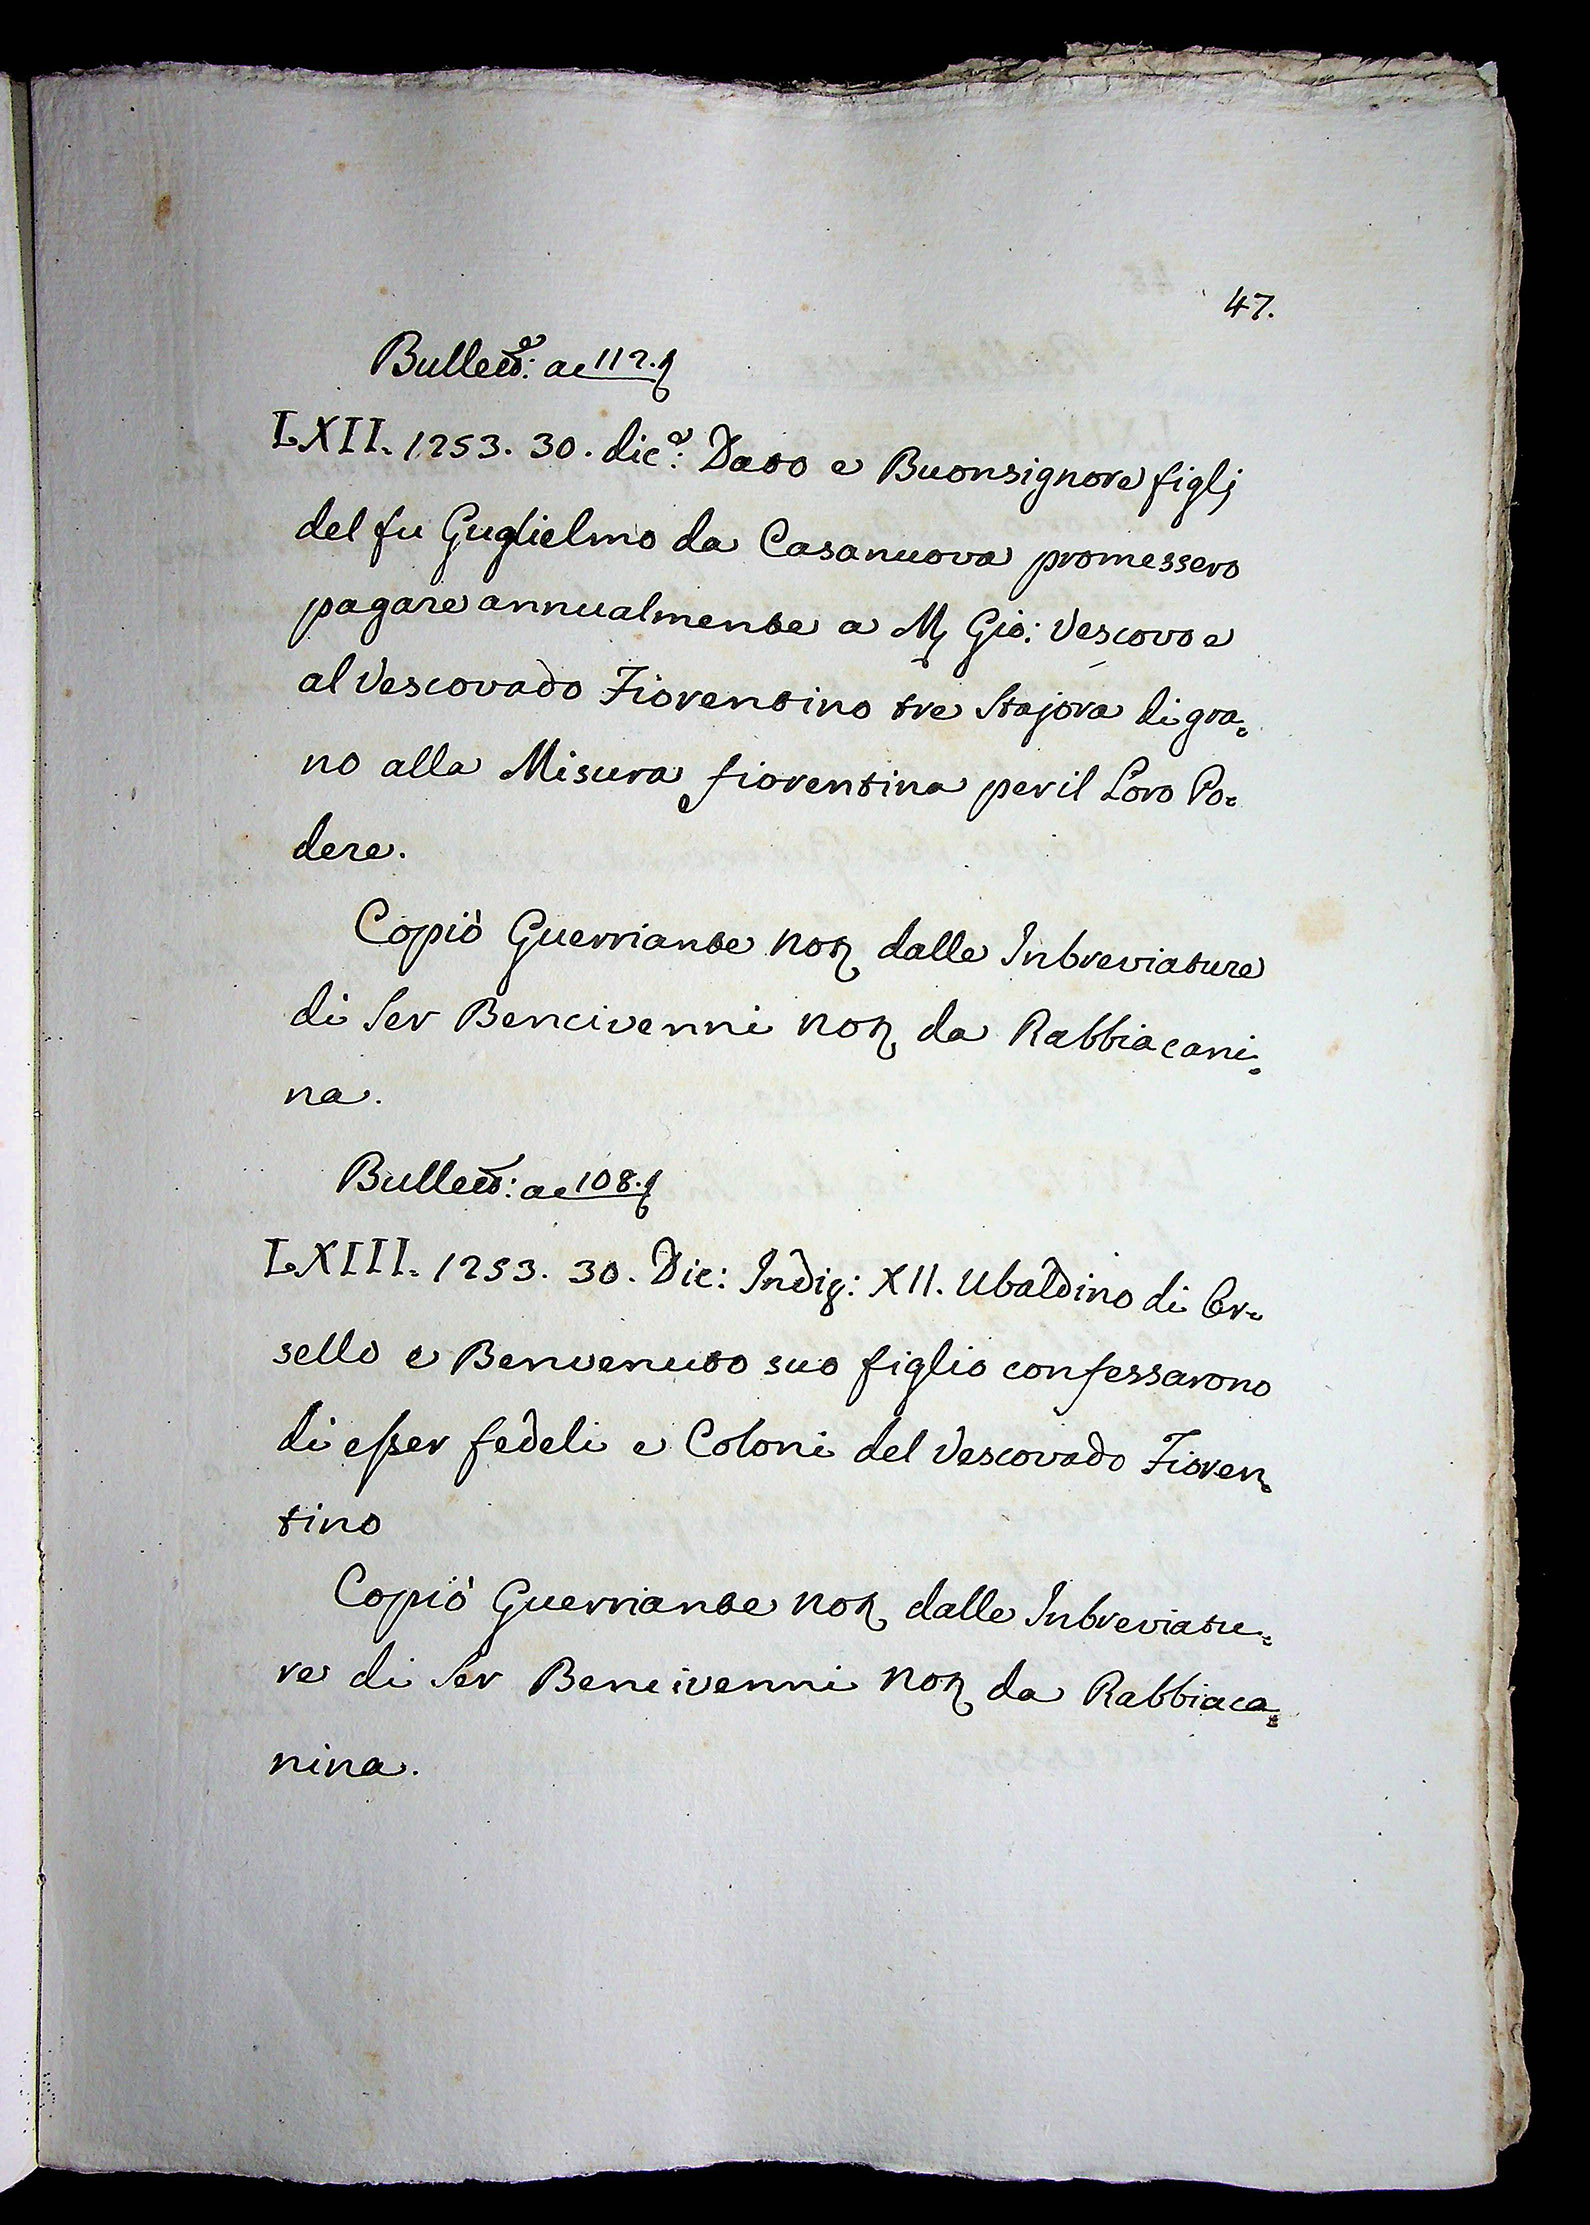 47.
Bullett.e: ac 112.
LXII. 1253. 30. dic.e: Dato e Buonsignore figlj
del fu Guglielmo da Casanuova promessero
pagare annualmente a M Gio: Vescovo e
al Vescovado Fiorentino tre Stajora di gra=
no alla Misura fiorentina per il Loro Po=
dere.
Copiò Guerriante Not dalle Inbreviature
di Ser Bencivenni Not da Rabbiacani=
na.
Bullett: ac 108.
LXIII. 1253. 30. Dic: Indiz: XII. Ubaldino di Or=
sello e Benvenuto suo figlio confessarono
di esser fedeli e Coloni del Vescovado Fioren=
tino
Copiò Guerriante Not dalle Inbreviatu=
re di Ser Bencivenni Not da Rabbiaca=
nina.